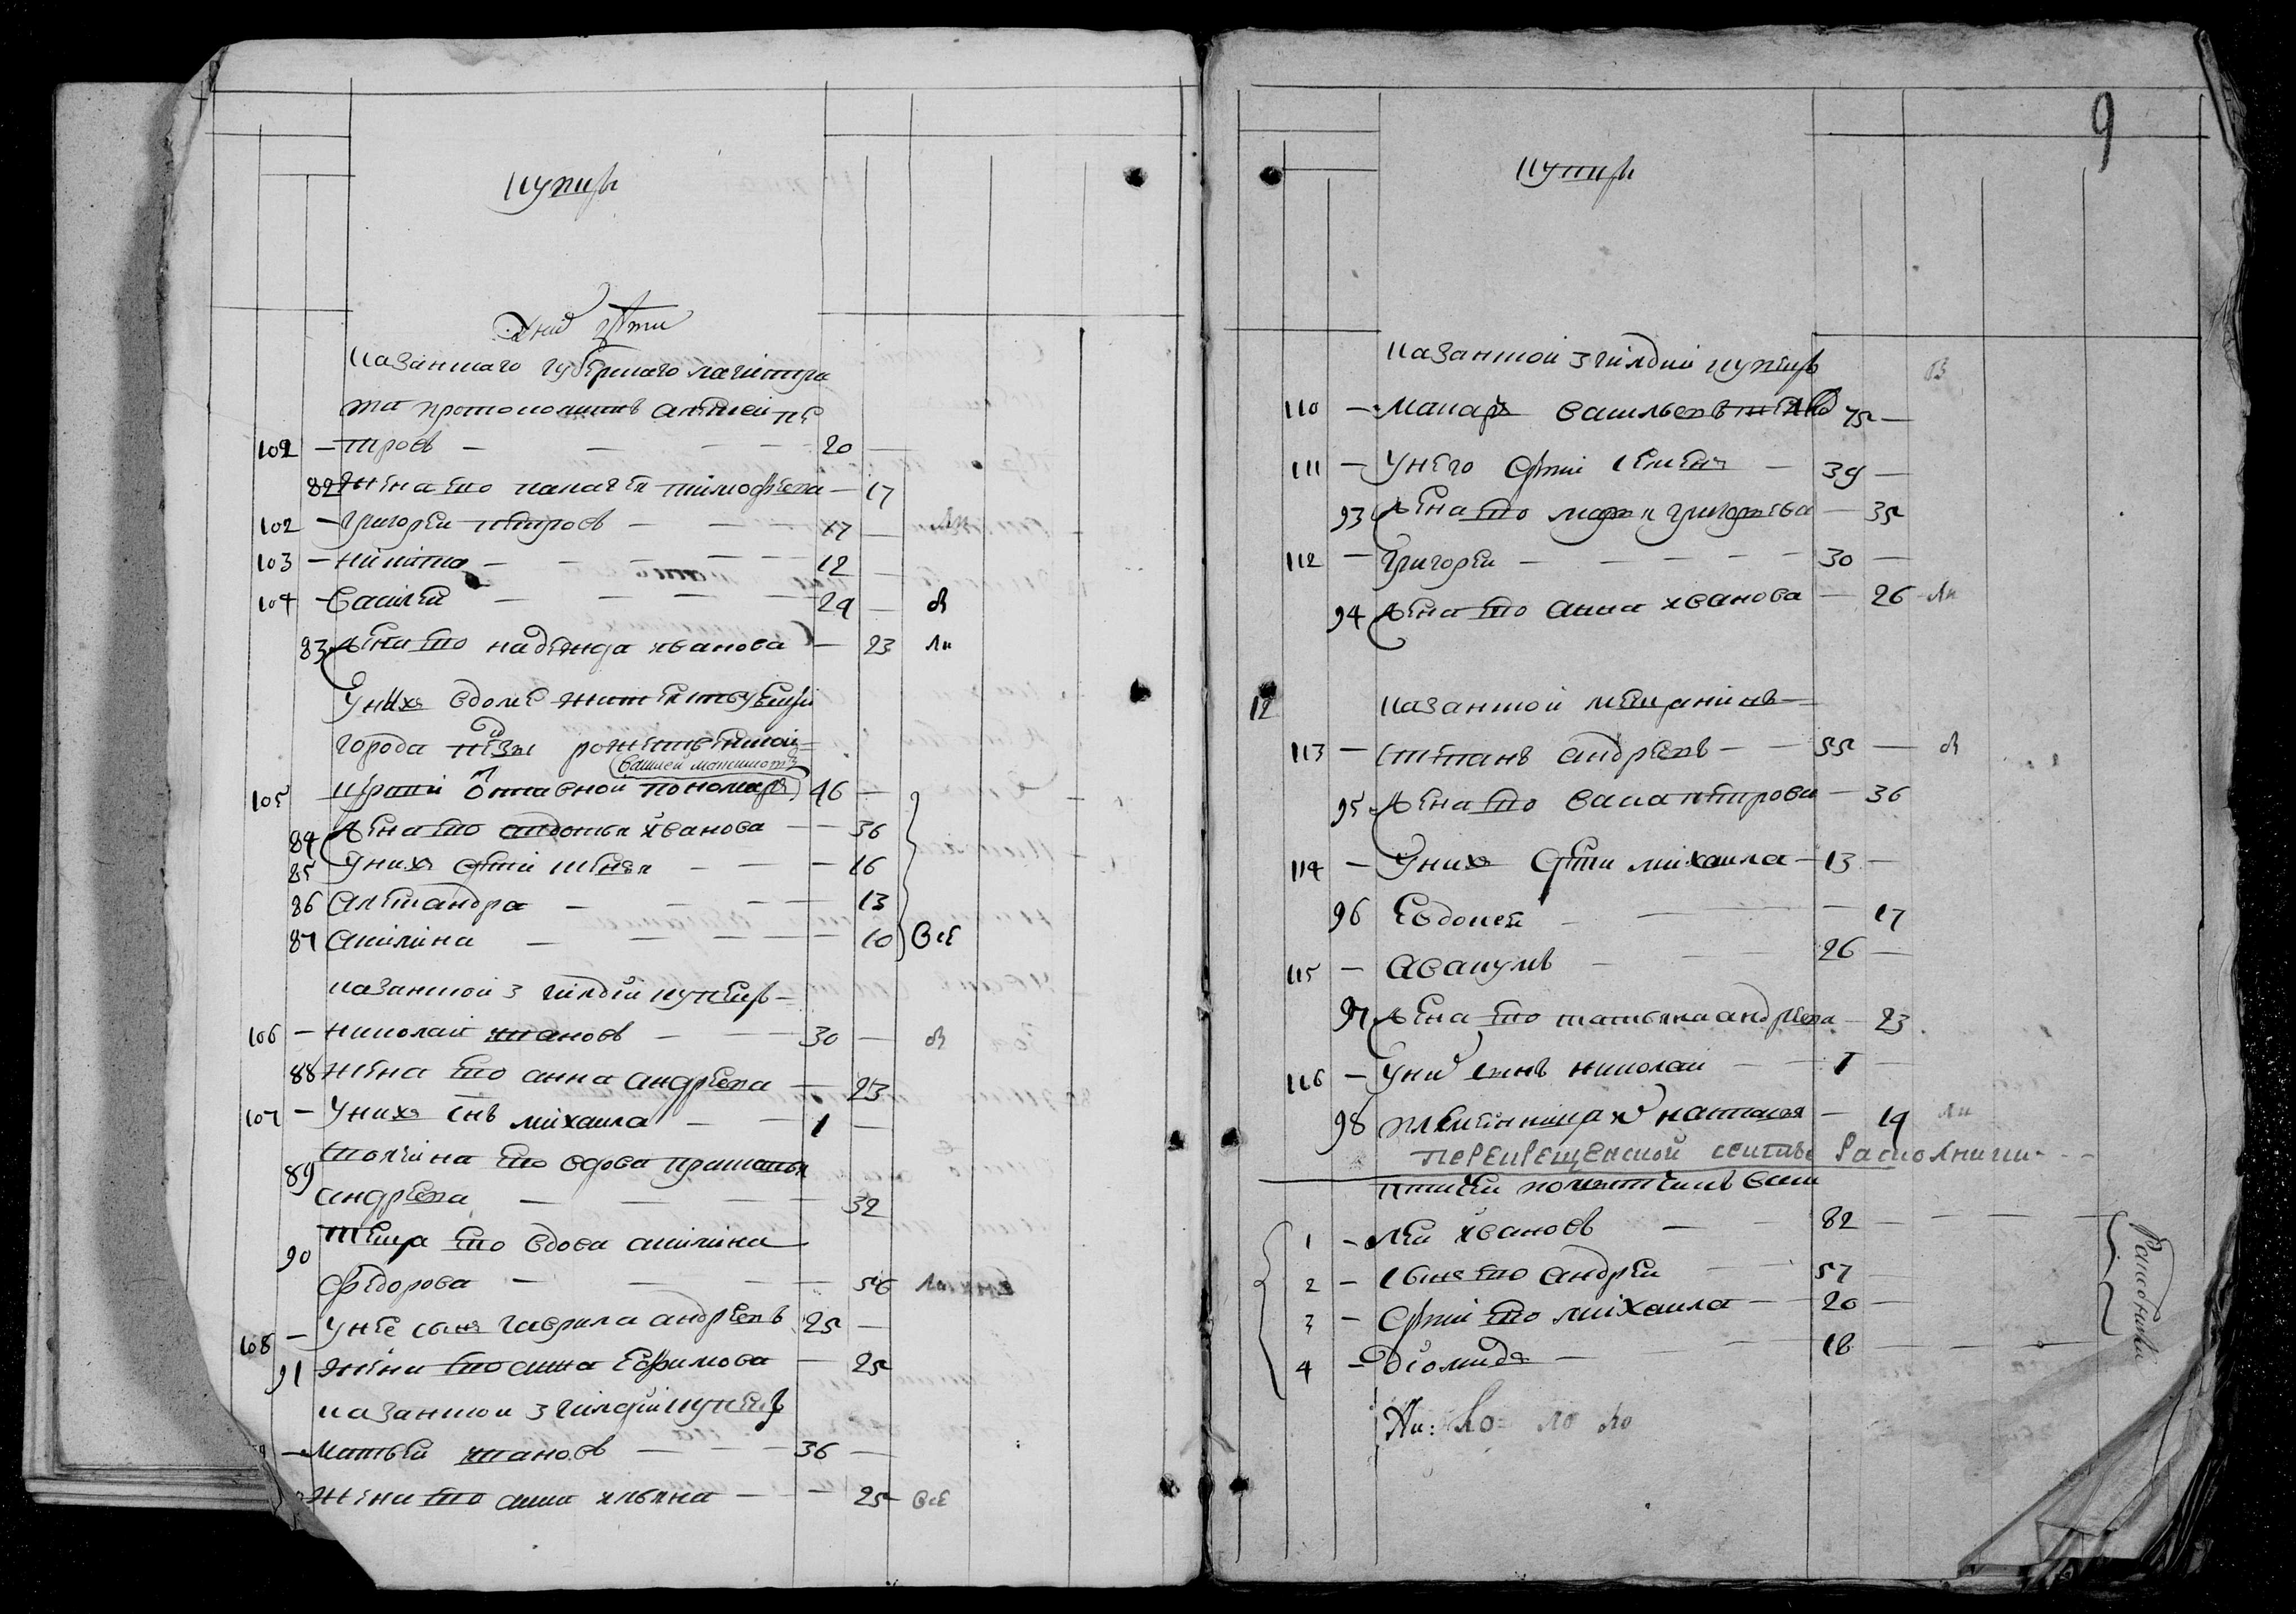 купцы
У них дети
казанскаго губернскаго магистра
та протоколистъ алексей пе
101 — тровъ — 20 —
82 жена ево пелагея тимофеева — 17
102 — григорей петровъ — 17 —
103 — никита — 12 —
104 — василей — 24 —
83 жена ево надежда иванова — 23
У них в доме жительствующей
города пензы рожественской
василей
105 церкви отставной пономарь 46 —
84 жена ево авдотья иванова — 36
85 У них дети — 16
86 александра — 13
87 акилина — 10 все
казанской 3 гилдии купецъ
106 — николай ивановъ — 30 —
88 жена ево анна андреева — 23
107 — У них снъ михаила — 1 —
89 ево вдова прасковья
андреева — 32
90 теща ево вдова акилина
федорова — 56
108 — У нее сынъ гаврила андреевъ 25 —
91 жена ево анна ефимова — 25
казанской 3 гилдии купецъ
9 — матвей ивановъ — 36 —
жена ево анна ильина — 25 все
9
купцы
казанской 3 гилдии купецъ
110 — макаръ васильевъ 75 —
111 — У него дети семенъ — 39 —
93 жена ево марья григорьева — 35
112 — григорей — 30 —
94 жена ево анна иванова — 26
12 казанской мещанинъ
113 — степанъ андреевъ — 55 —
95 жена ево васа петрова — 36
114 — У них дети михаила — 13 —
96 Евдокея — 17
115 — авакумъ — 26 —
97 жена ево татьяна андреева — 23
116 — У них сынъ николай — 1 —
98 племенница их наталья — 14
перекрещенской секты Раскольники
васи
1 — лей ивановъ — 82 —
2 — сынъ ево андрей — 57 —
3 — дети ево михаила — 20 —
4 — диомидъ — 18 —
Раскольники